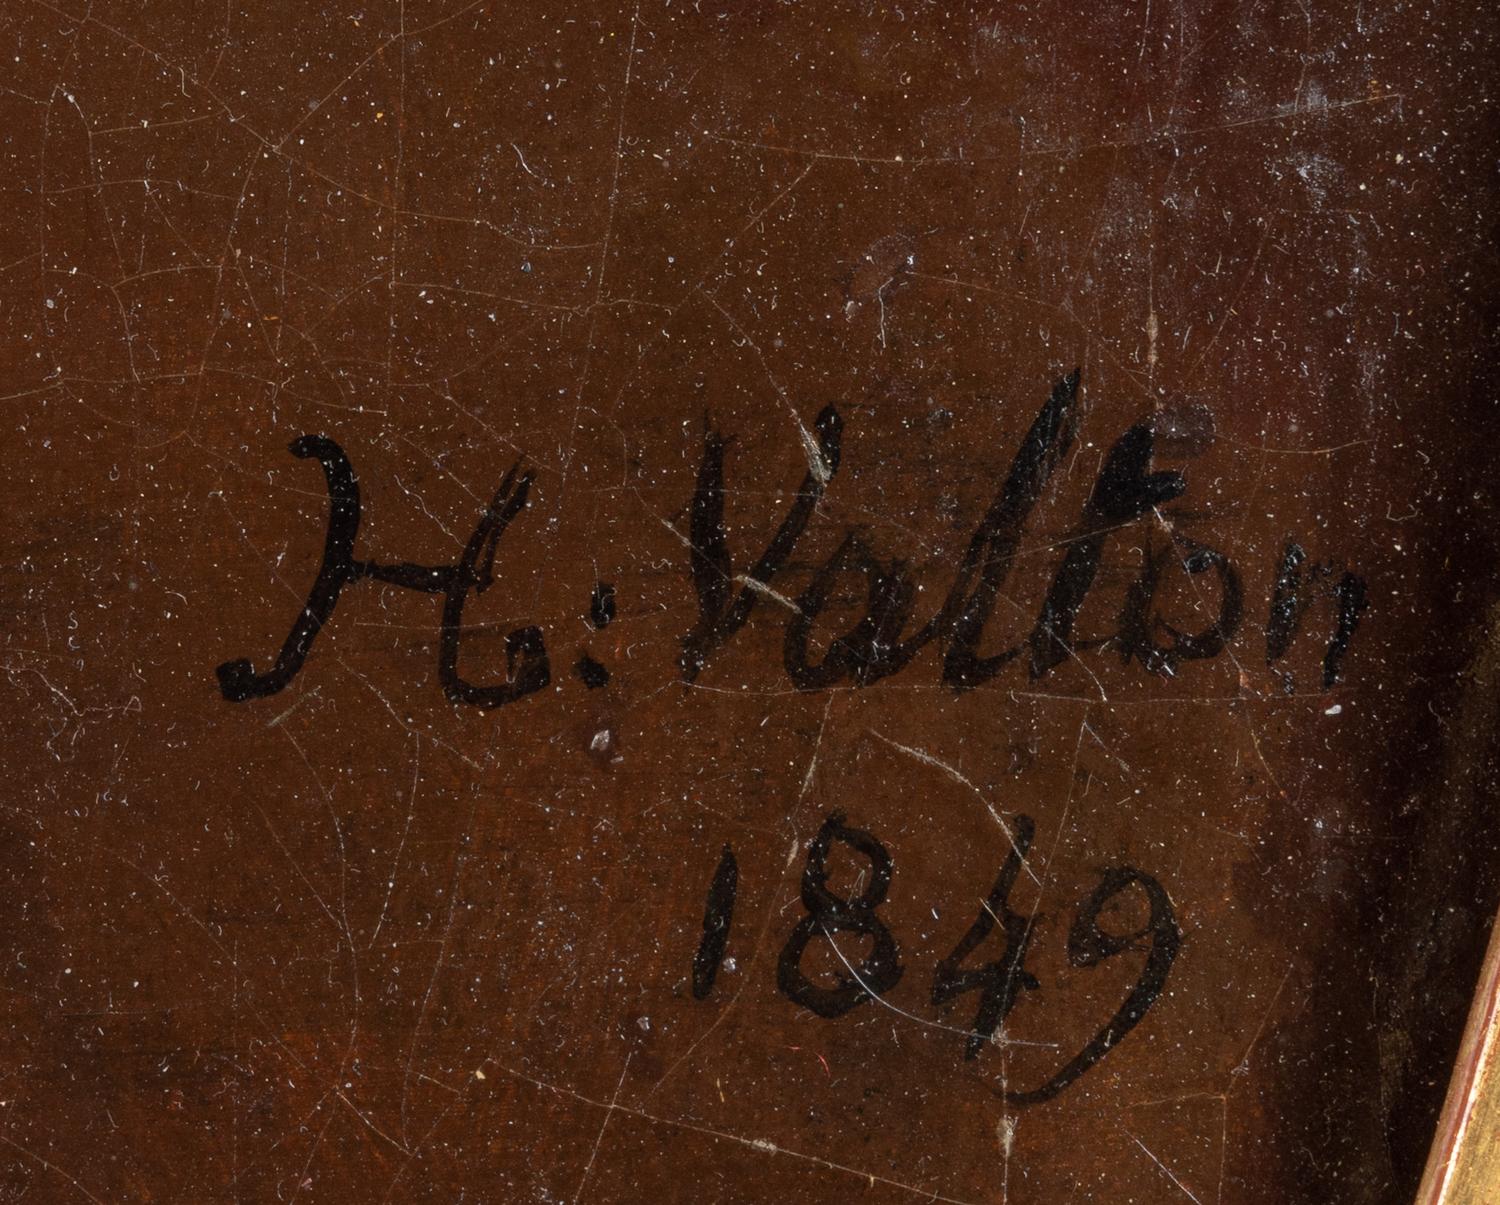 H: Valton
1849